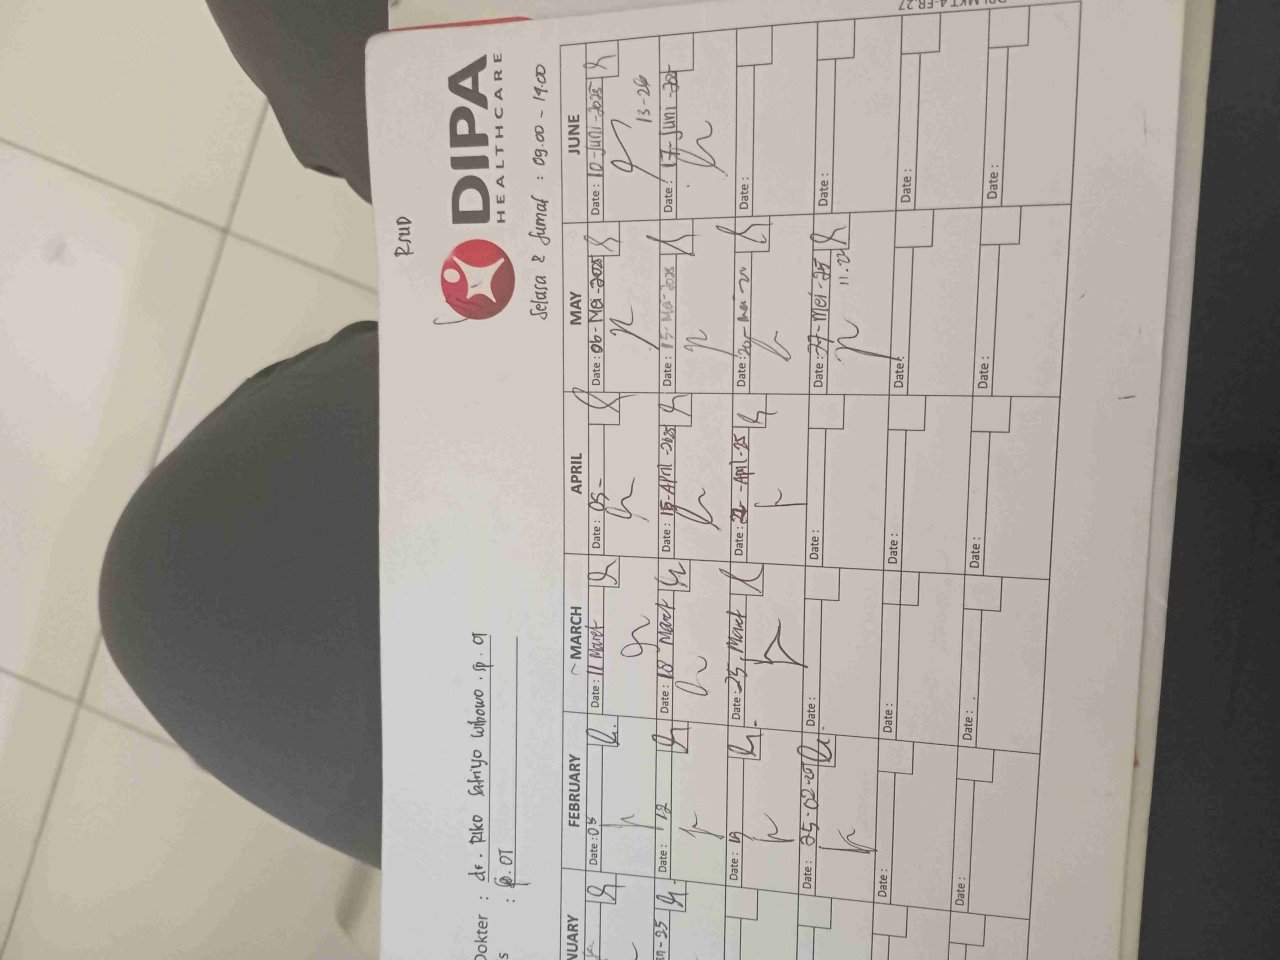 RSUD
DIPA
HEALTHCARE
Selasa & Jumat : 09.00 - 14.00
Dokter : dr. Riko Satriyo Wibowo . Sp. OT
s : Sp. OT
NUARY FEBRUARY MARCH APRIL MAY JUNE
Date : 05 Date : 11 Maret Date : 05 - Date : 06 - Mei - 2025 Date : 10 - Juni - 2025
13-26
n - 25 Date : 12 Date : 18 Maret Date : 15 - April - 2025 Date : 15 - Mei - 2025 Date : 17 - Juni - 202
Date : 19 Date : 25. Maret Date : 22 - April - 25 Date : 20 - Mei - Date :
Date : 25-02-20 Date : Date : Date : 27 - Mei - 25 Date :
11.22
Date : Date : Date : Date : Date :
Date : Date : Date : Date : Date :